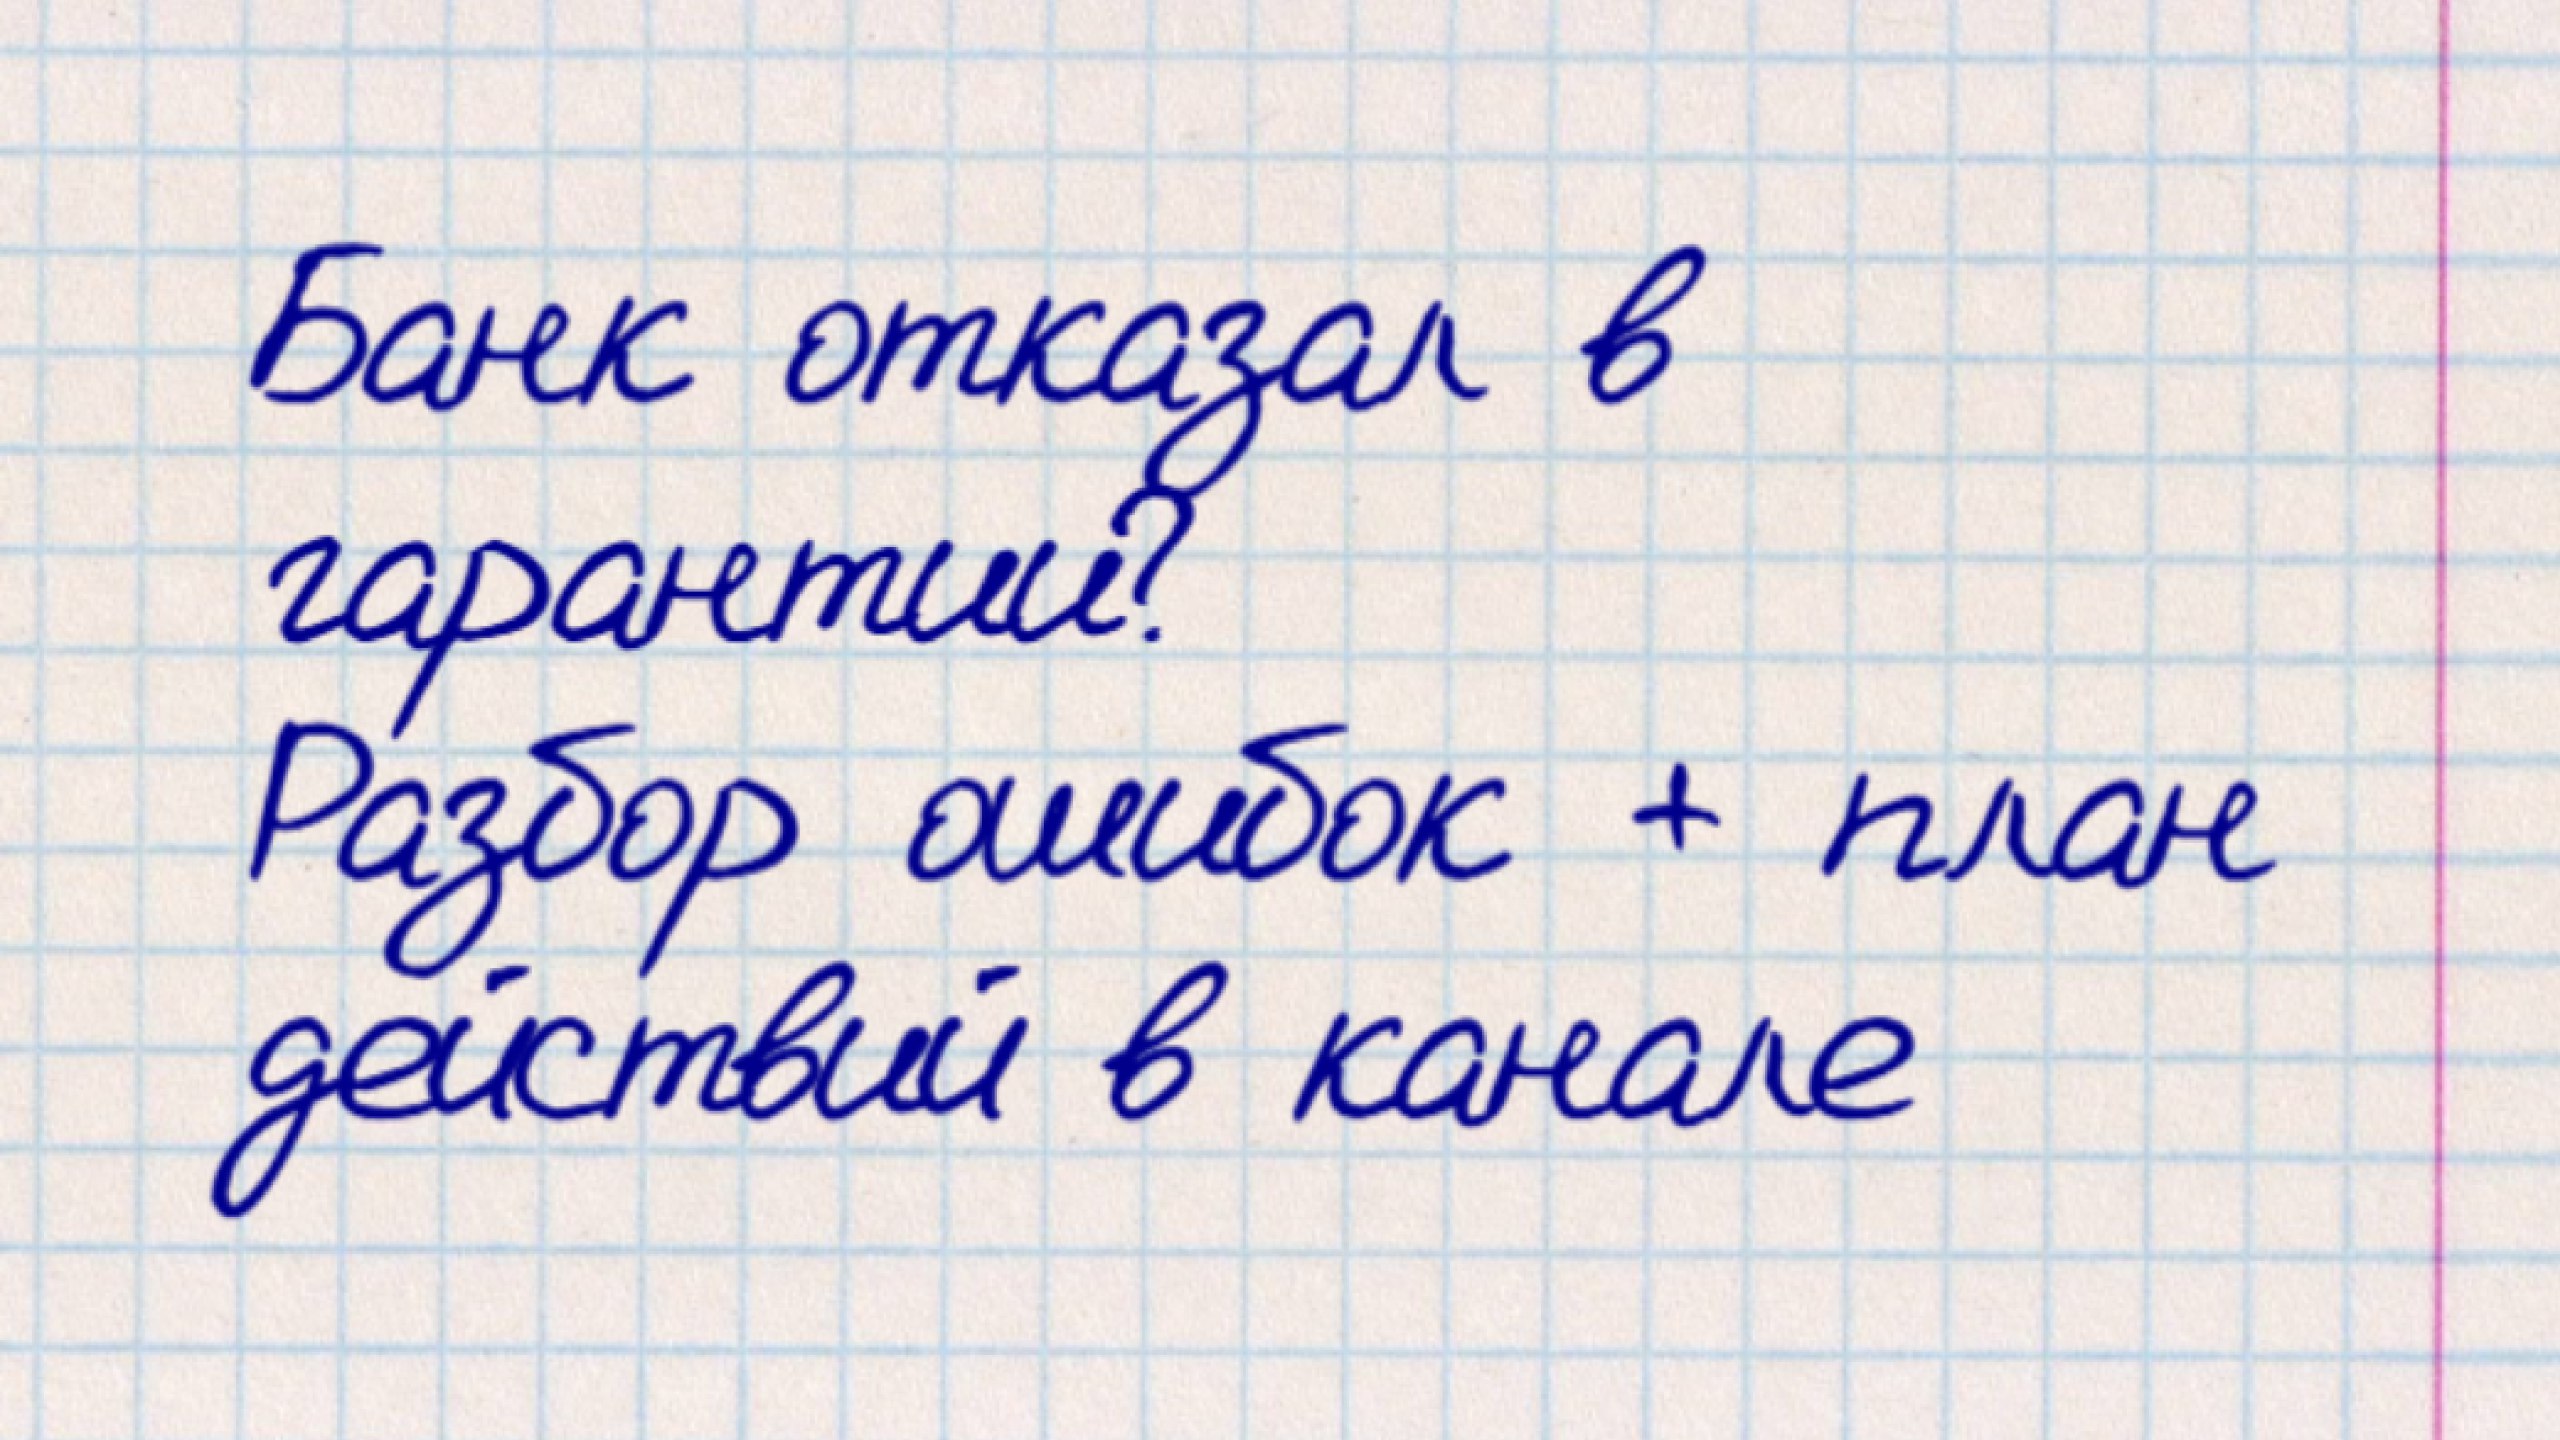 Банк отказал в
гарантии?
Разбор ошибок + план
действий в канале